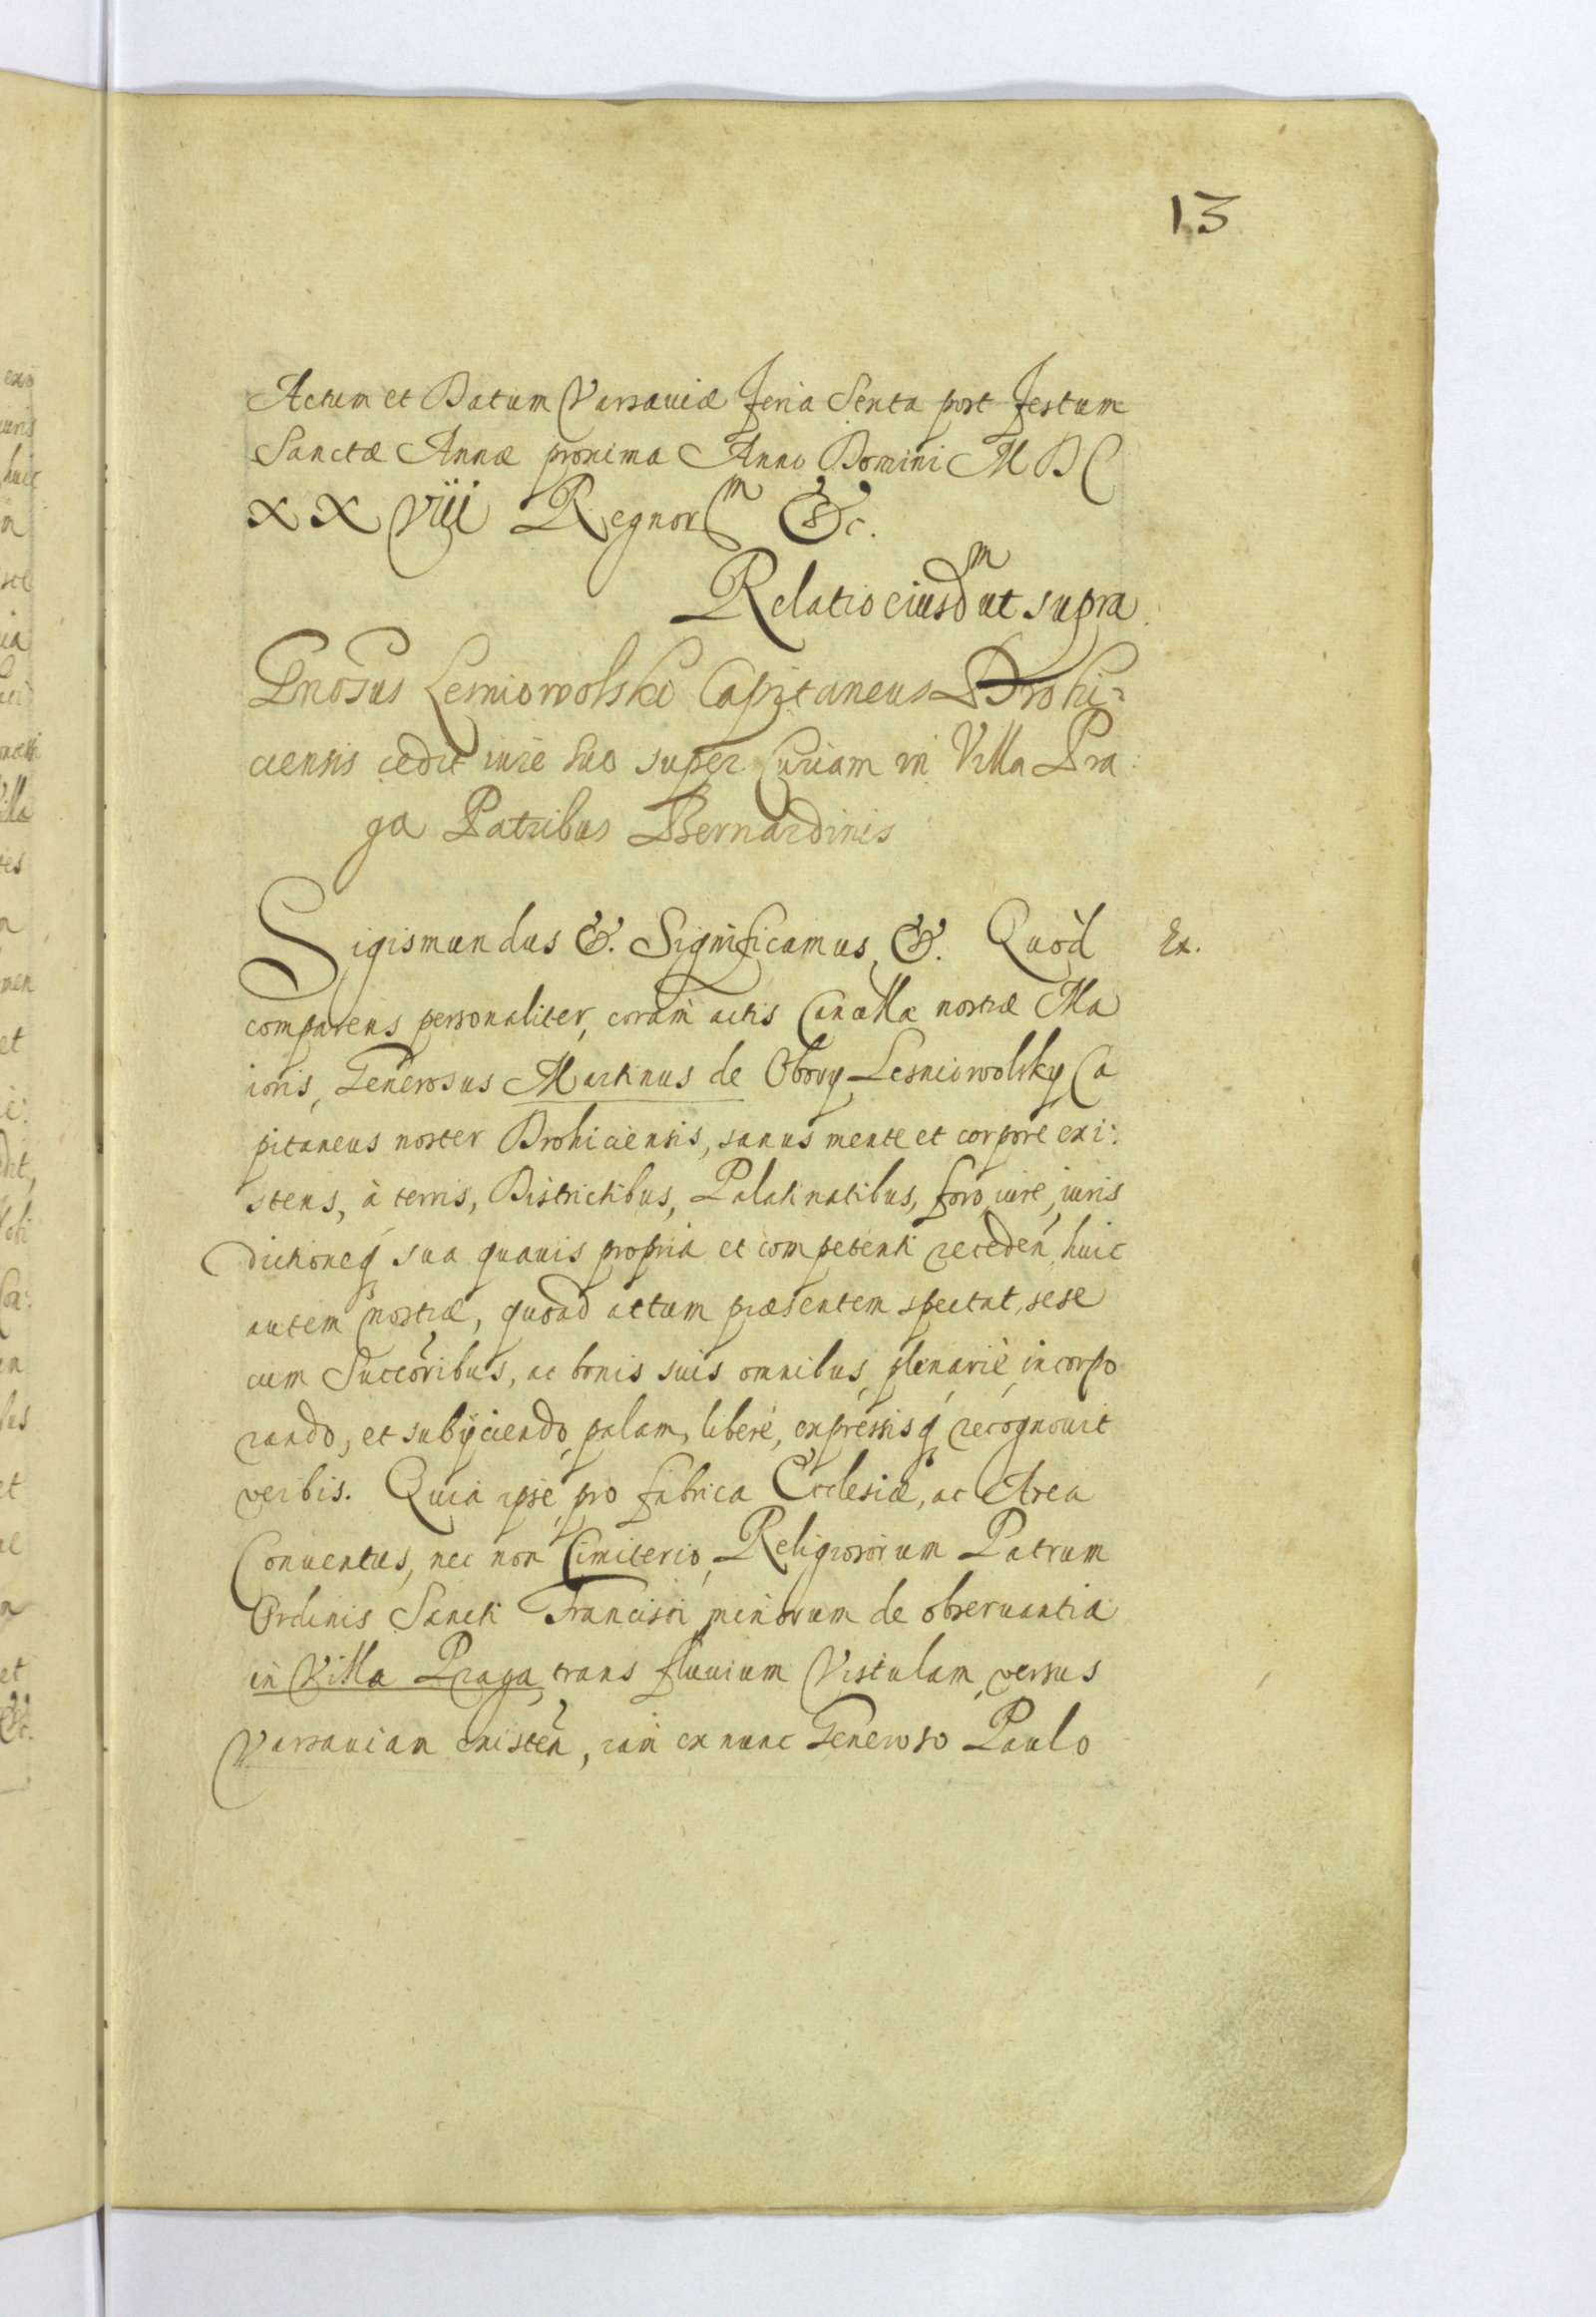 13
Actum et Datum Varsauiæ feria Sexta post festum
Sanctæ Annæ proxima Anno Domini M D C
XX Viii Regnor̃m &c.
Relatio eiusd̃m ut supra.
Gnosus Lesniowolski Capitaneus Drohi=
ciensis cedit iure suo super Curiam in Villa Pra:
ga Patribus Bernardinis
Sigismundus &. Significamus, &. Quòd Ex.
comparens personaliter, coram actis Cancellæ nostræ Ma
ioris, Generosus Martinus de Obory Lesniowolsky Ca
pitaneus noster Drohiciensis, sanus mente et corpore exi:
stens, à terris, Districtibus, Palatinatibus, foro, iure, iuris
dictioneq́ sua quauis propria et competenti receden̂, huic
autem nostræ, quoad actum præsentem spectat, sese
cum Succoribus, ac bonis suis omnibus, plenariè, incorpo
rando, et subÿciendo, palam, liberè, expressisq́ recognouit
verbis. Quia ipse, pro fabrica Ecclesiæ, ac Area
Conuentus, nec non Cimiterio, Religiosorum Patrum
Ordinis Sancti Francisci, minorum de obseruantia
in Villa Praga, trans fluuium Vistulam, versus
Varsauiam existen̂, iam ex nunc Generoso Paulo